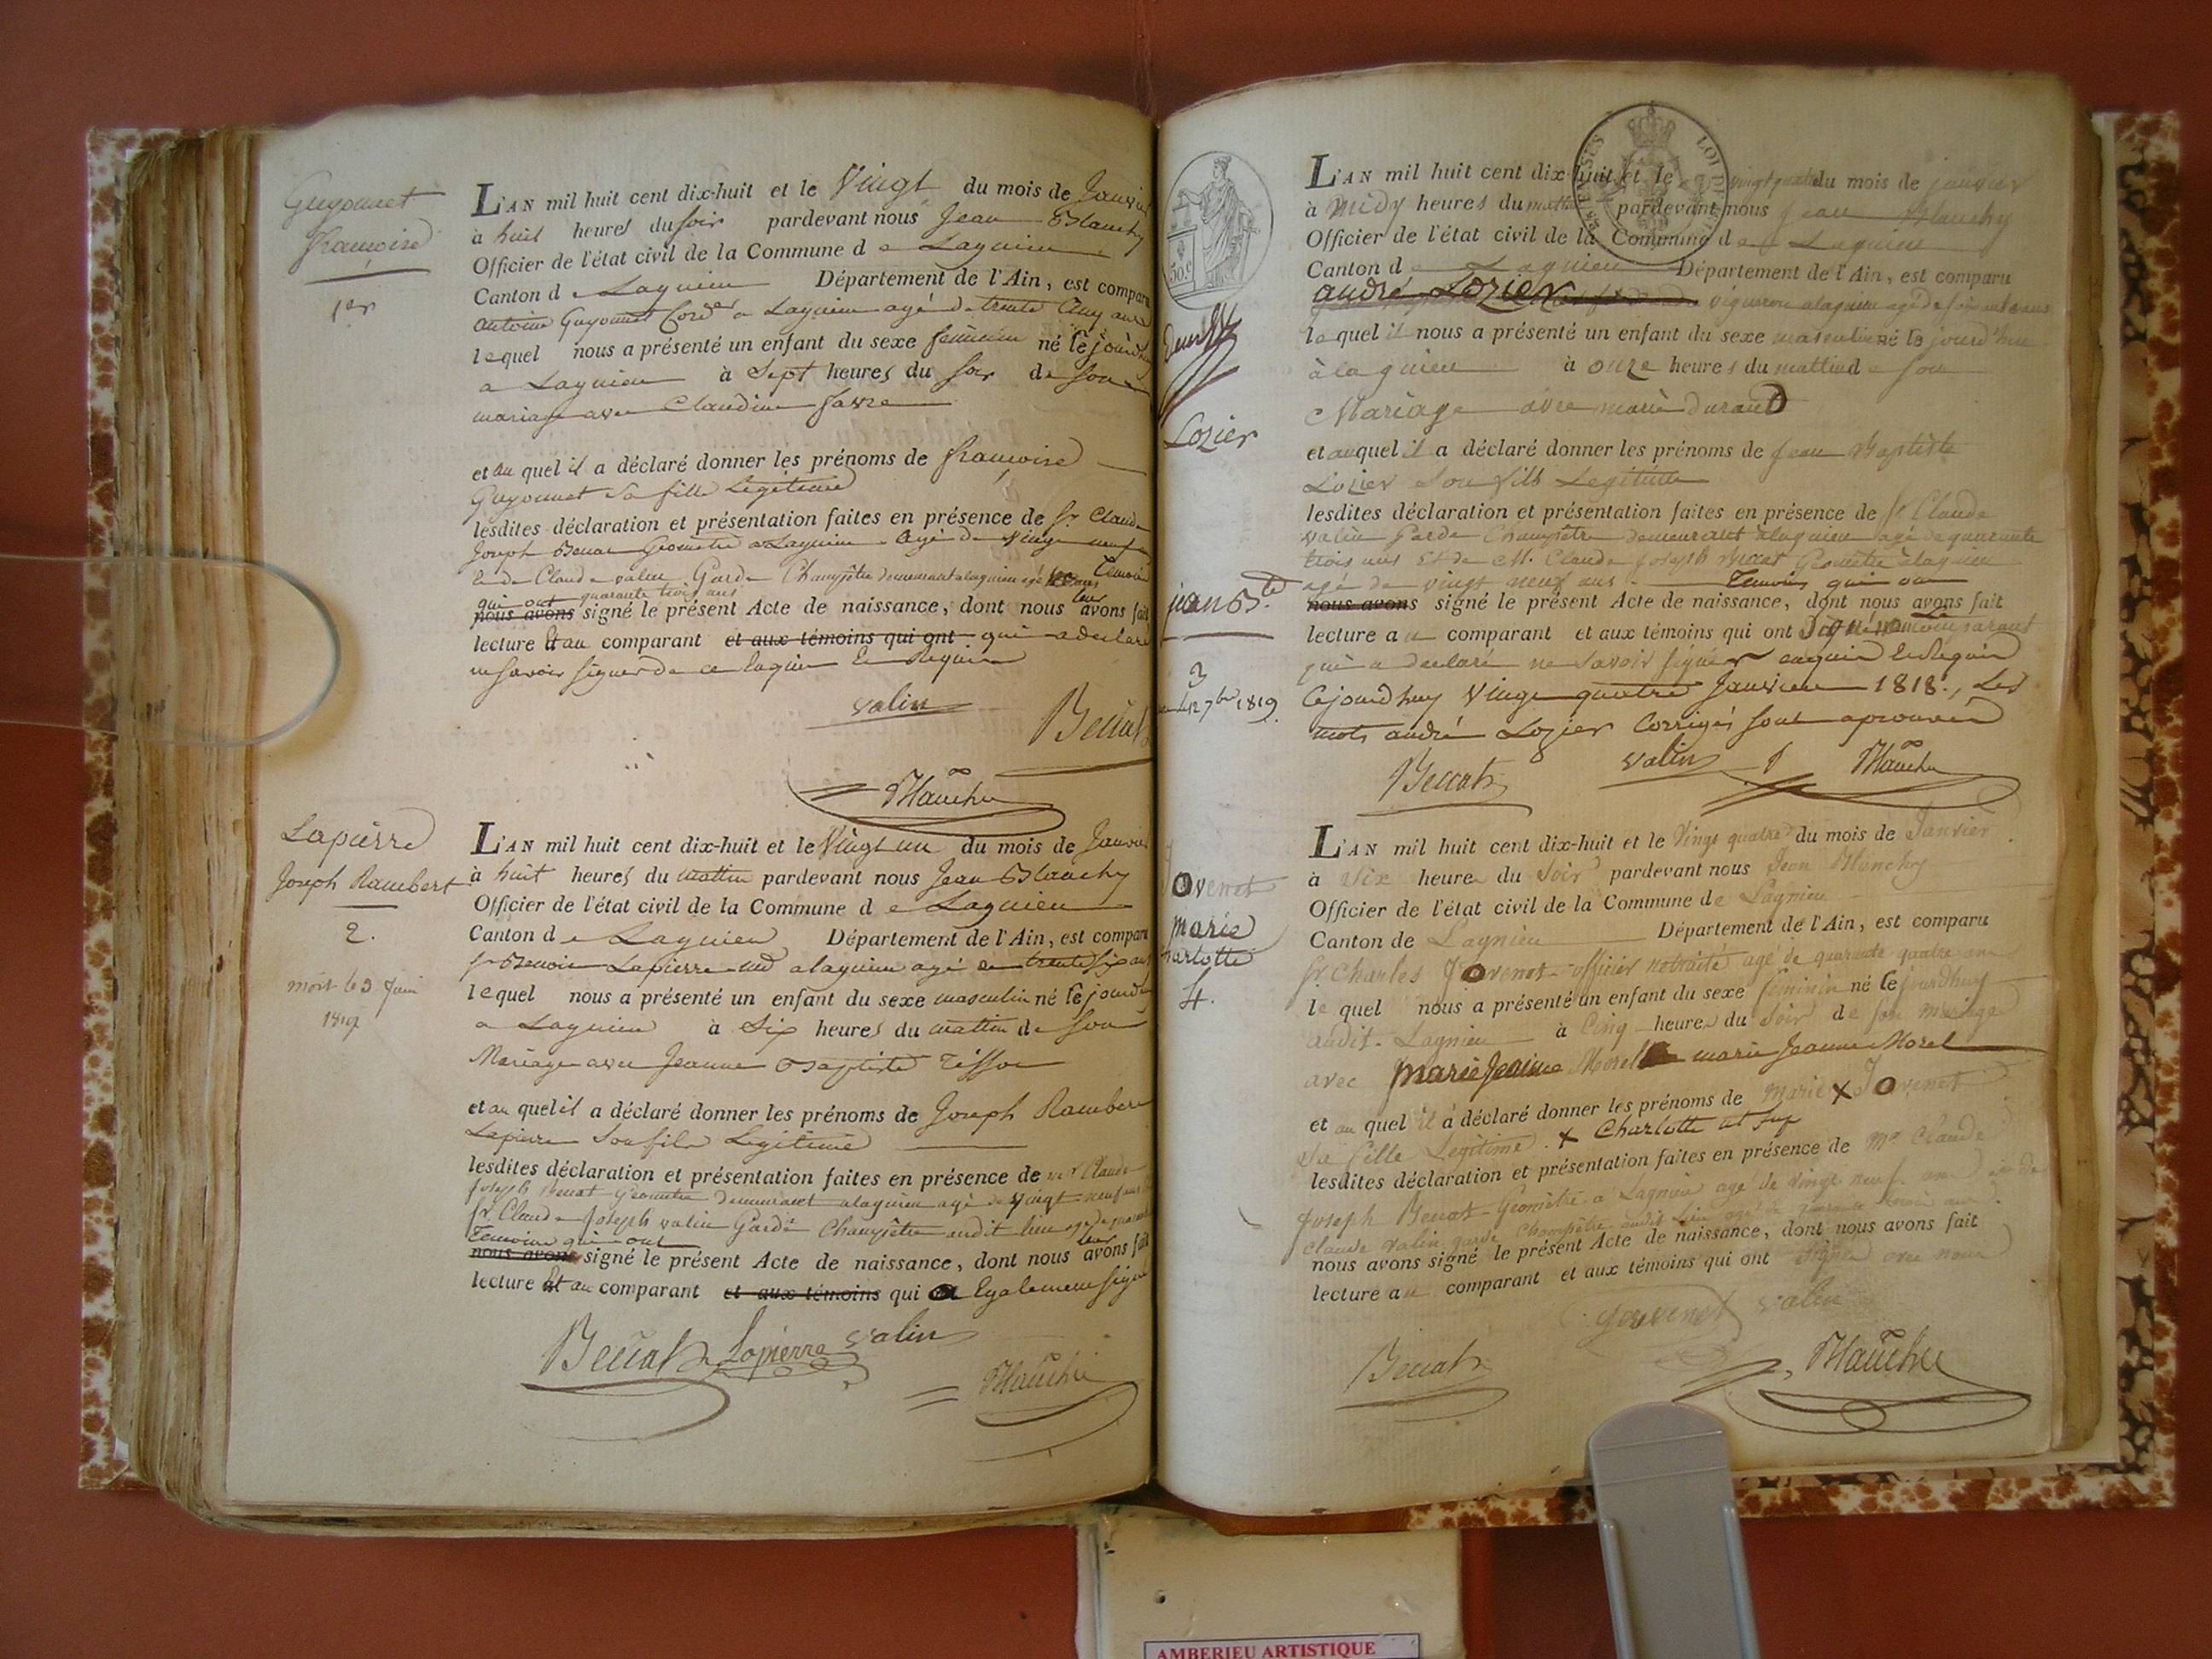 Guyonnet
françoise
1er
L'AN mil huit cent dix-huit et le Vingt du mois de Janvier
à huit heures du soir pardevant nous Jean Blanchy
Officier de l'état civil de la Commune d e Lagnieu
Canton d e Lagnieu Département de l'Ain, est comparu
antoine Guyonnet Cordier a Lagnieu agé de trente Cinq ans
lequel nous a présenté un enfant du sexe feminin né le jourdhuy
a Lagnieu à Sept heures du soir de son
mariage avec Claudine favre
et au quel il a déclaré donner les prénoms de françoise
Guyonnet Sa fille Legitime
lesdites déclaration et présentation faites en présence de Sr Claude
Joseph Beccat Geometre a Lagnieu agé de Vingt neuf ans
Et de Claude valin Garde Champêtre demeurant a lagnieu agé de Temoins
qui ont quarante trois ans
nous avons signé le présent Acte de naissance, dont nous leur avons fait
lecture Et au comparant et aux témoins qui ont qui a declaré
ne savoir signer de ce Enquis Et Requis
valin
Beccat
Blanchy
Lapierre
Joseph Rambert
2.
mort le 3 Juin
1819
L'AN mil huit cent dix-huit et le Vingt un du mois de Janvier
à huit heures du mattin pardevant nous Jean Blanchy
Officier de l'état civil de la Commune d e Lagnieu
Canton d e Lagnieu Département de l'Ain, est comparu
Sr Benoit Lapierre md a lagnieu agé de trente six ans
lequel nous a présenté un enfant du sexe masculin né le jourdhuy
a Lagnieu à Six heures du mattin de son
Mariage avec Jeanne Baptiste Tissot
et au quel il a déclaré donner les prénoms de Joseph Rambert
Lapierre Son fils Legitime
lesdites déclaration et présentation faites en présence de mr Claude
Joseph Beccat Géometre demeurant a lagnieu agé de vingt neuf ans
Sr Claude Joseph valin Garde Champêtre audit lieu agé de quarante
Temoins qui ont
nous avons signé le présent Acte de naissance, dont nous leur avons fait
lecture Et au comparant et aux témoins qui a Egalement signé
Beccat Lapierre valin
Blanchy
30.c
Lozier
jean Bte
3
12 7bre 1819
L'AN mil huit cent dix-huit et le vingt quatre du mois de janvier
à midy heures du mattin pardevant nous Jean Blanchy
Officier de l'état civil de la Commune d e Lagnieu
Canton d e Lagnieu Département de l'Ain, est comparu
andré Lozier vigneron a lagnieu agé de
le quel il nous a présenté un enfant du sexe masculin né le jourd'hui
à lagnieu à onze heures du mattin d e son
Mariage avec marie durand
et au quel il a déclaré donner les prénoms de Jean Baptiste
Lozier Son fils Legitime
lesdites déclaration et présentation faites en présence de Sr Claude
valin Garde Champêtre demeurant a lagnieu agé de quarante
trois ans Et de M. Claude Joseph Beccat Geomêtre a lagnieu
agé de vingt neuf ans Temoins qui ont
nous avons signé le présent Acte de naissance, dont nous avons fait
lecture a u comparant et aux témoins qui ont Signé
qui a declaré ne savoir signer enquis Et Requis
Cejourdhuy Vingt quatre Janvier 1818., Les
mots andré Lozier Corrigés sont aprouvés
Beccat valin Blanchy
Jovenet
marie
harlotte
4.
L'AN mil huit cent dix-huit et le Vingt quatre du mois de Janvier
à Six heure du Soir pardevant nous Jean Blanchy
Officier de l'état civil de la Commune de Lagnieu
Canton de Lagnieu Département de l'Ain, est comparu
Sr. Charles Jovenet officier retraité agé de quarante quatre ans
le quel nous a présenté un enfant du sexe feminin né le jourdhuy
audit Lagnieu à Cinq heure du Soir de son Mariage
avec marie Jeanne Morel marie Jeanne Morel
et au quel il a déclaré donner les prénoms de Marie x Jovenet
Sa fille Legitime. x Charlotte
lesdites déclaration et présentation faites en présence de Mr Claude
Joseph Beccat Géomètre a Lagnieu agé de vingt neuf ans et de
Claude valin garde Champêtre audit Lieu agé de quarante trois ans
nous avons signé le présent Acte de naissance, dont nous avons fait
lecture au comparant et aux témoins qui ont signé avec nous
Jouvenet valin
Beccat Blanchy
AMBERIEU ARTISTIQUE